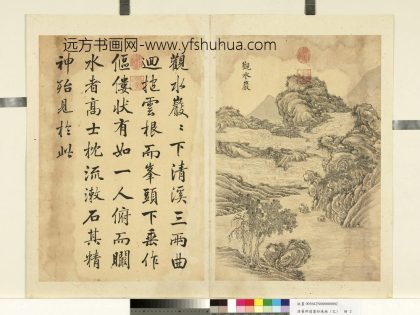 远方书画网- www.yfshuhua.com
觀水巖
觀水巖〻下清溪三兩曲
迴雲根而峯頭下垂作
傴僂狀有如一人俯而瞷
水者高士枕流漱石其精
神殆見於此